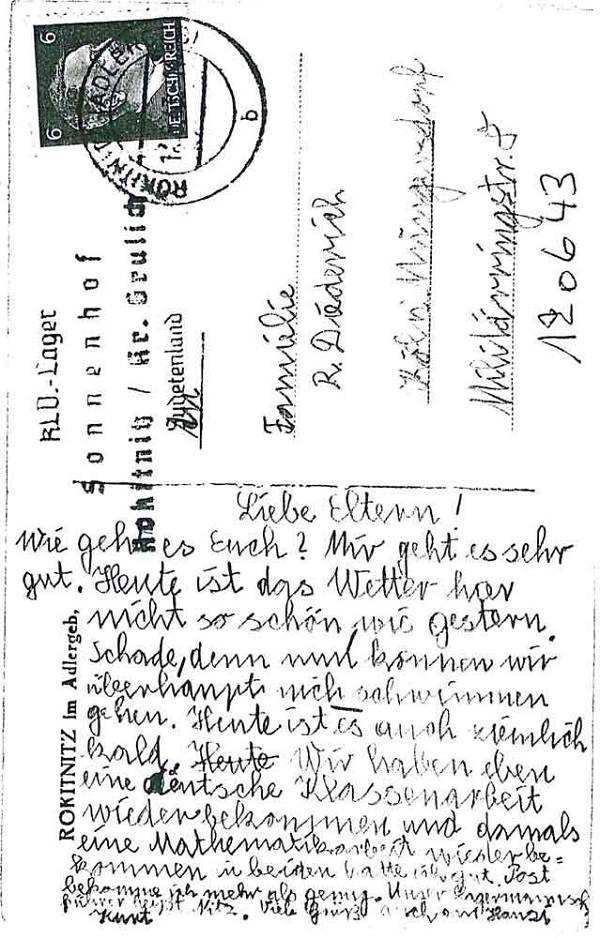 6 6
DEUTSCHES REICH
ROKITNITZ ADLERGEB
b
KLV.-Lager
Sonnenhof
Rokitnitz / Kr. Grulich
Sudetenland
Familie
R. Diederich
Köln Müngersdorf
Militärringstr. 8
12 06 43
ROKITNITZ im Adlergeb.
Liebe Eltern!
Wie geht es Euch? Mir geht es sehr
gut. Heute ist das Wetter hier
nicht so schön, wie gestern.
Schade, denn nun können wir
überhaupt nich schwimmen
gehen. Heute ist es auch ziemlich
kald. Heute Wir haben eben
eine deutsche Klassenarbeit
wiederbekommen und damals
eine Mathematikarbeit wiederbe=
kommen in beiden hatte ich gut. Post
bekomme ich mehr als genug. Unser Lagermannsch
führer heißt Nitz. Viele Grüß auch an Hansi
Kurt